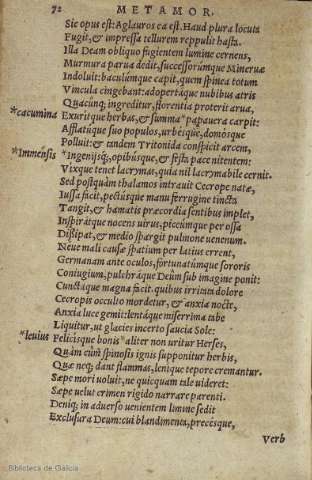 72 METAMOR.
Sic opus est: Aglauros ea est. Haud plura locuta
Fugit, & impressa tellurem reppulit hasta.
Illa Deam obliquo fugientem lumine cernens,
Murmura parua dedit, successurúmque Mineruæ
Indoluit: baculúmque capit, quem spinea totum
Vincula cingebant: adopertáque nubibus atris
Quacunq; ingreditur, florentia proterit arua,
*cacumina Exurítque herbas, & summa *papauera carpit:
Afflatúque suo populos, urbésque, domósque
Polluit: & tandem Tritonida conspicit arcem,
*Immensis *Ingenijsq;, opibúsque, & festa pace nitentem:
Vixque tenet lacrymas, quia nil lacrymabile cernit.
Sed postquàm thalamos intrauit Cecrope natæ,
Iussa facit, pectúsque manu ferrugine tincta
Tangit, & hamatis præcordia sentibus implet,
Inspirátque nocens uirus, piceúmque per ossa
Dissipat, & medio spargit pulmone uenenum.
Neue mali causæ spatium per latius errent,
Germanam ante oculos, fortunatúmque sororis
Coniugium, pulchráque Deũm sub imagine ponit:
Cunctáque magna facit. quibus irritata dolore
Cecropis occulto mordetur, & anxia nocte,
Anxia luce gemit: lentáque miserrima tabe
Liquitur, ut glacies incerto saucia Sole:
*leuius Felicisque bonis *aliter non uritur Herses,
Quàm cùm spinosis ignis supponitur herbis,
Quæ neq; dant flammas, lenique tepore cremantur.
Sæpe mori uoluit, ne quicquam tale uideret:
Sæpe uelut crimen rigido narrare parenti.
Deniq; in aduerso uenientem limine sedit
Exclusura Deum: cui blandimenta, precésque,
Verb
Biblioteca de Galicia